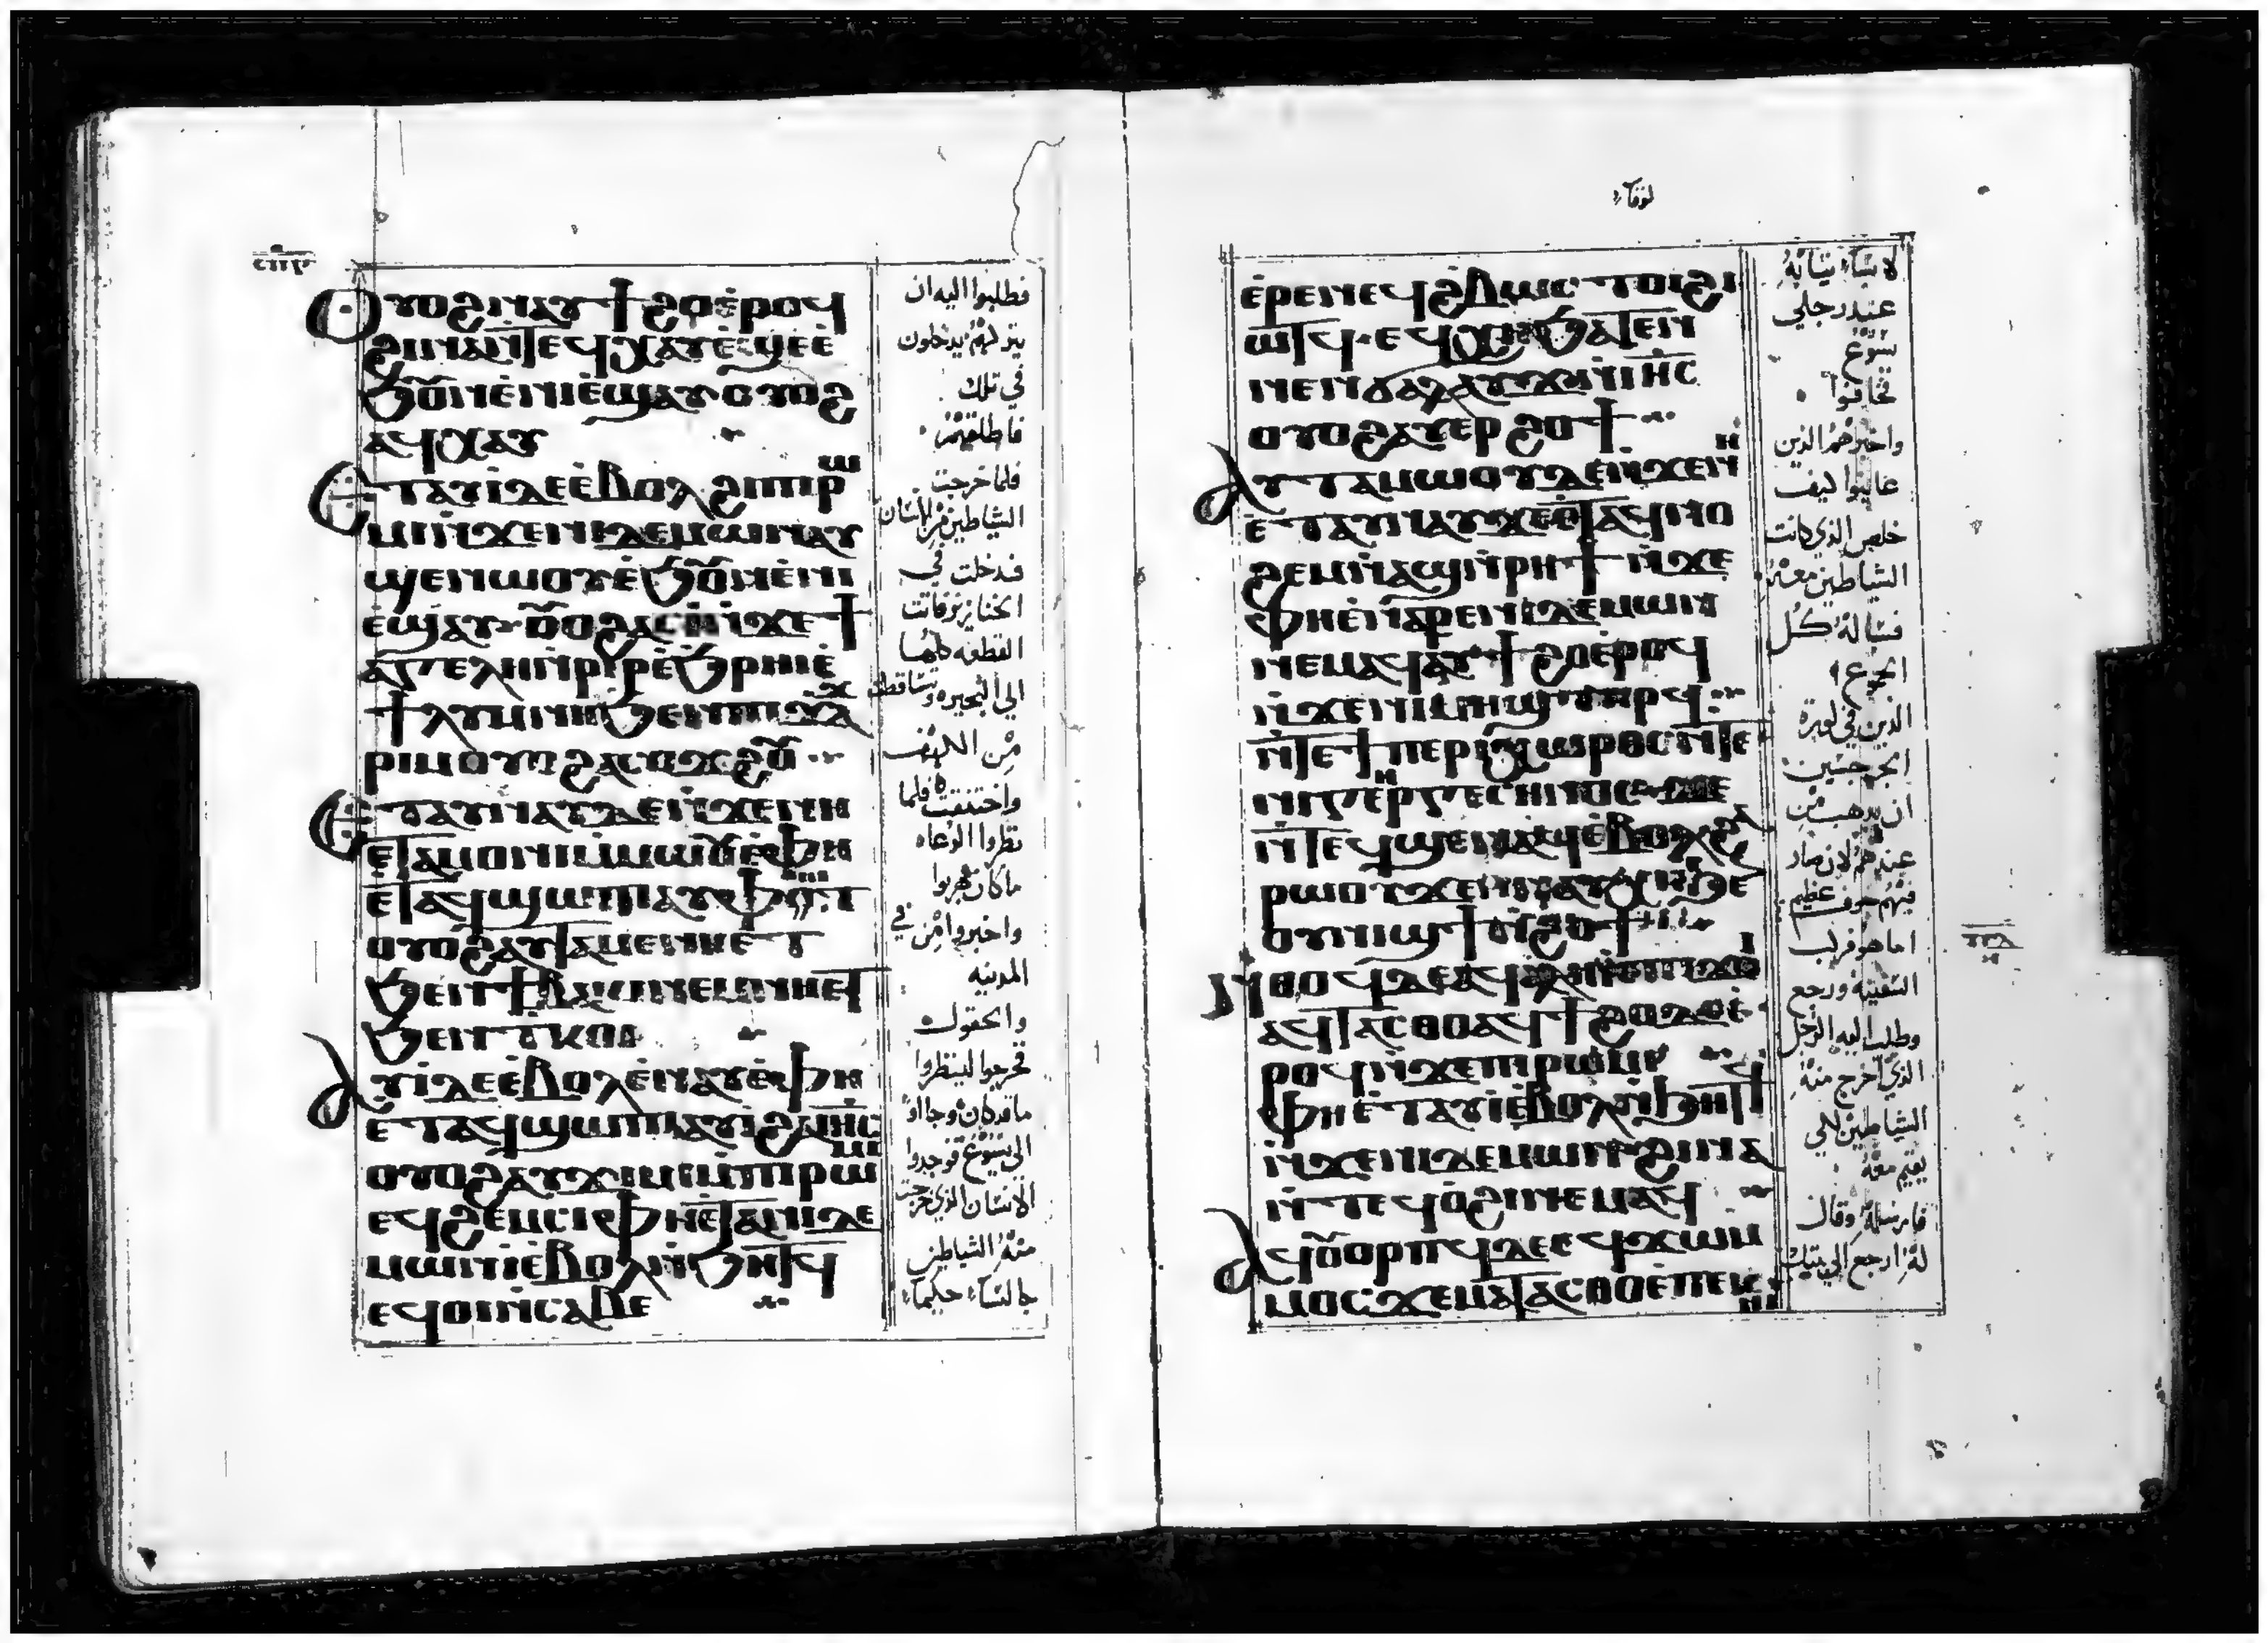 ⲟⲩⲟϩ ⲛⲁⲩϯϩⲟ ⲉ̀ⲣⲟϥ
ϩⲓⲛⲁ ⲛ̀ⲧⲉϥⲭⲁⲩ ⲉ̀ϣⲉ ⲉ̀
ϧⲟⲩⲛ ⲉ̀ⲛⲓⲉ̀ϣⲁⲩ ⲟⲩⲟϩ
ⲁϥⲭⲁⲩ
ⲉⲧⲁⲩⲓ̀ ⲇⲉ ⲉ̀ⲃⲟⲗ ϩⲓ ⲡⲓⲣⲱ
ⲙⲓ ⲛ̀ϫⲉ ⲛⲓⲇⲉⲙⲱⲛ ⲁⲩ
ϣⲉⲛⲱⲟⲩ ⲉ̀ϧⲟⲩⲛ ⲉ̀ⲛⲓ
ⲉ̀ϣⲁⲩ ⲟⲩⲟϩ ⲛ̀ϫⲉ ϯ
ⲁⲅⲉⲗⲏ ⲉ̀ϧⲣⲏⲓ ⲉ̀
ϯⲗⲩⲙⲛⲏ ϧⲉⲛ ⲡⲓϫⲁϫ
ⲣⲓⲙ ⲟⲩⲟϩ ⲁⲥⲱϫϩ
ⲉⲧⲁⲩⲛⲁⲩ ⲇⲉ ⲛ̀ϫⲉ ⲛⲏ
ⲉⲧⲁⲙⲟⲛⲓ ⲙ̀ⲙⲱⲟⲩ ⲉ̀ⲫⲏ
ⲉⲧⲁϥϣⲱⲡⲓ ⲁⲩⲫⲱⲧ
ⲟⲩⲟϩ ⲁⲩⲧⲁⲙⲉ ⲛⲏ ⲉⲧ
ϧⲉⲛ ϯⲃⲁⲕⲓ ⲛⲉⲙ ⲛⲏ ⲉⲧ
ϧⲉⲛ ⲧⲕⲟⲓ
ⲁⲩⲓ̀ ⲇⲉ ⲉ̀ⲃⲟⲗ ⲉ̀ⲛⲁⲩ ⲉ̀ⲫⲏ
ⲉ̀ⲧⲁϥϣⲱⲡⲓ ⲁⲩⲓ̀ ϩⲁ ⲓⲏⲥ
ⲟⲩⲟϩ ⲁⲩϫⲓⲙⲓ ⲙ̀ⲡⲓⲣⲱⲙⲓ
ⲉϥϩⲉⲙⲥⲓ ⲫⲏ ⲉ̀ⲧⲁ ⲛⲓⲇⲉ
ⲙⲱⲛ ⲓ̀ ⲉ̀ⲃⲟⲗ ⲛ̀ϧⲏⲧϥ
ⲉϥⲟⲓ ⲛ̀ⲥⲁⲃⲉ
فطلبوا اليه ان
يتركهم يدخلون
في تلك
فاطلقهم
فلما خرجت
الشياطين من الانسان
فدخلت في
الخنازير فاتت
القطعه كلها
الي البحيره وتساقطت
من الكهف
واختنقت فلما
نظروا الرعاه
ما كان هربوا
واخبروا من في
المدينه
والحقول
فخرجوا لينظروا
ما قد كان وجااوا
الي يسوع فوجدوا
الانسان الذي خرجت
منه الشياطين
جالسا حكيما
لوقا
ⲉ̀ⲣⲉ ⲛⲉϥϩⲃⲱⲥ ⲧⲟⲓ ϩⲓ
ⲱⲧϥ ⲉϥⲭⲏ ϧⲁⲧⲉⲛ
ⲛⲉⲛϭⲁⲗⲁⲩϫ ⲛ̀ⲓⲏⲥ
ⲟⲩⲟϩ ⲁⲩⲉⲣϩⲟϯ
ⲁⲩⲧⲁⲙⲱⲟⲩ ⲇⲉ ⲛ̀ϫⲉ ⲛⲏ
ⲉ̀ⲧⲁⲩⲛⲁⲩ ϫⲉ ⲉ̀ⲧⲁϥⲛⲟ
ϩⲉⲙ ⲛ̀ⲁϣ ⲛ̀ⲣⲏϯ ⲛ̀ϫⲉ
ⲫⲏ ⲉ̀ⲛⲁⲣⲉ ⲛⲓⲇⲉⲙⲱⲛ
ⲛⲉⲙⲁϥ ⲁⲩϯϩⲟ ⲉ̀ⲣⲟϥ
ⲛ̀ϫⲉ ⲛⲓⲙⲏϣ ⲧⲏⲣϥ
ⲛ̀ⲧⲉ ϯⲡⲉⲣⲓⲭⲱⲣⲟⲥ ⲛ̀ⲧⲉ
ⲛⲓⲅⲉⲣⲅⲉⲥⲏⲛⲟⲥ
ⲛ̀ⲧⲉϥϣⲉⲛⲁϥ ⲉ̀ⲃⲟⲗ ϩⲁ
ⲣⲱⲟⲩ ϫⲉ
ⲟⲩⲛⲓϣϯ ⲛ̀ϩⲟϯ
ⲛ̀ⲑⲟϥ ⲇⲉ ⲁϥⲁⲗⲏⲓ ⲉ̀ⲡⲓϫⲟⲓ
ⲁϥⲧⲁⲥⲑⲟ ⲁϥϯϩⲟ ⲇⲉ ⲉ̀
ⲣⲟϥ ⲛ̀ϫⲉ ⲡⲓⲣⲱⲙⲓ
ⲫⲏ ⲉ̀ⲧⲁⲩⲓ̀ ⲉ̀ⲃⲟⲗ ⲛ̀ϧⲏⲧϥ
ⲛ̀ϫⲉ ⲛⲓⲇⲉⲙⲱⲛ ϩⲓⲛⲁ
ⲛ̀ⲧⲉϥⲟ̀ϩⲓ ⲛⲉⲙⲁϥ
ⲁϥⲟⲩⲟⲣⲡϥ ⲇⲉ ⲉϥϫⲱⲙ
ⲙⲟⲥ ϫⲉ ⲙⲁⲧⲁⲥⲑⲟ ⲉ̀ⲡⲉⲕⲏⲓ
لابسا ثيابه
عند رجلي
يسوع
فخافوا
واخبرهم الذين
عاينوا كيف
خلص الذي كانت
الشياطين معه
فساله كل
الجمع
الذين في كورة
الجرجسين
ان يذهب من
عندهم لان صار
فيهم خوف عظيم
اما هو فركب
السفينه ورجع
وطلب اليه الرجل
الذي اخرج منه
الشياطين لكي
يقيم معه
فارسله وقال
له ارجع الي بيتك